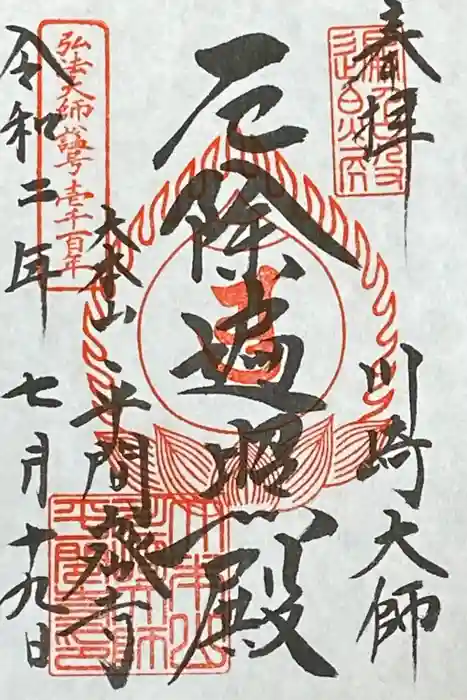 奉拝
川崎大師
厄除遍照殿
大本山
平間寺
弘法大師諡号壱千百年
令和二年
七月十九日